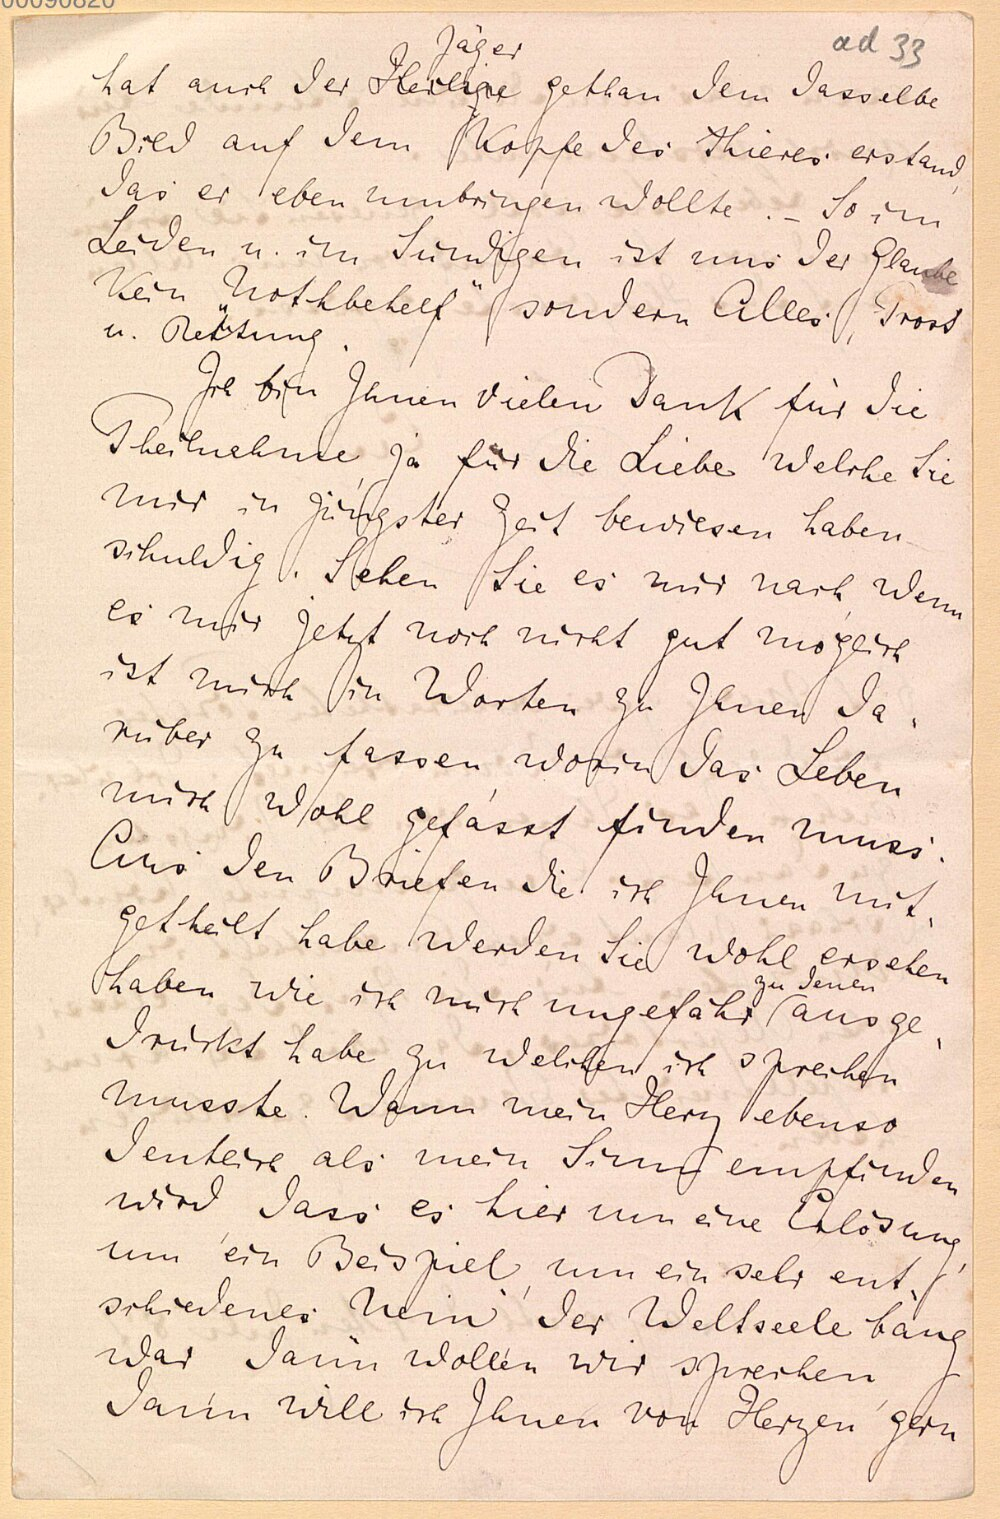 00090820
ad 33
Jäger
hat auch der Heilige gethan dem dasselbe
Bild auf dem Kopfe des Thieres erstand,
das er eben umbringen wollte. – So im
Leiden u. im Sündigen ist uns der Glaube
kein „Nothbehelf" sondern Alles, Trost
u. Rettung.
Ich bin Ihnen vielen Dank für die
Theilnahme, ja für die Liebe welche Sie
mir in jüngster Zeit bewiesen haben
schuldig. Sehen Sie es mir nach, wenn
es mir jetzt noch nicht gut möglich
ist mich in Worten zu Ihnen da-
rüber zu fassen, worin das Leben
mich wohl gefasst finden muss.
Aus den Briefen die ich Ihnen mit-
getheilt habe werden Sie wohl ersehen
haben wie ich mich ungefähr zu denen ausge-
drückt habe zu welchen ich sprechen
musste. Wann mein Herz ebenso
deutlich als mein Sinn empfinden
wird, dass es hier um eine Erlösung,
um ein Beispiel, um ein sehr ent-
schiedenes „Nein" der Weltseele bang
war dann wollen wir sprechen,
dann will ich Ihnen von Herzen gern